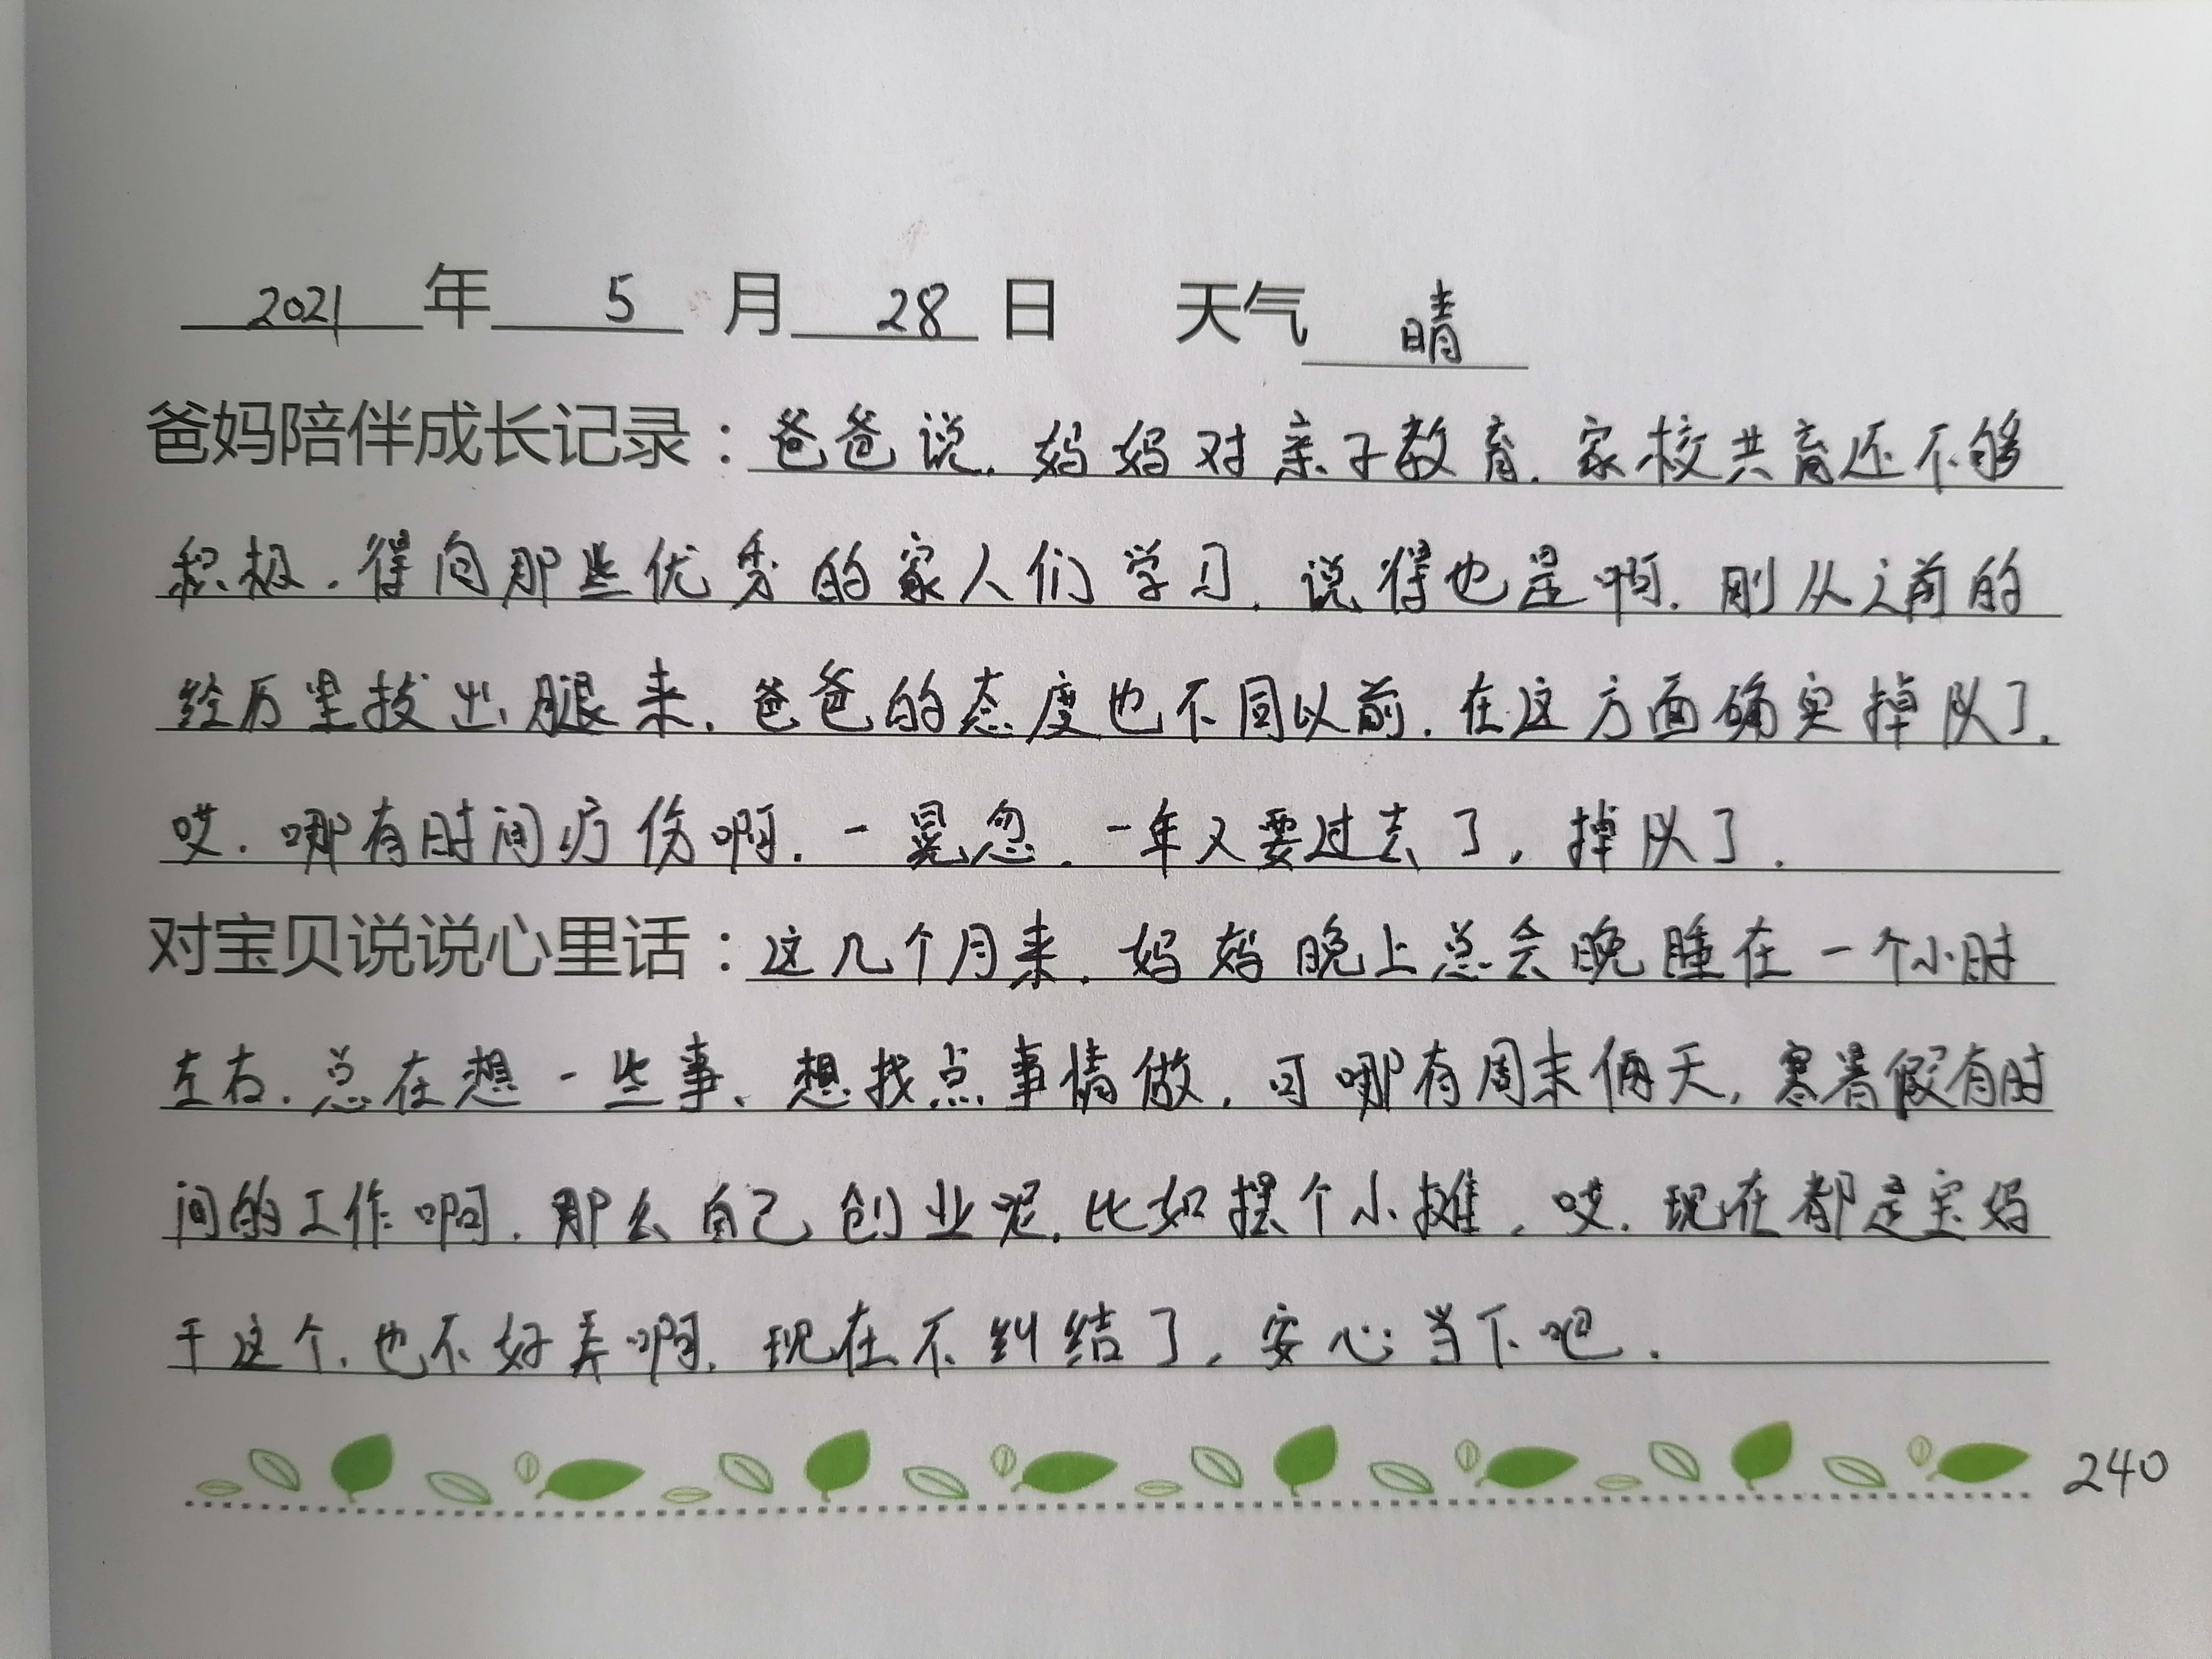 2021年 5 月 28 日 天气 晴
爸妈陪伴成长记录：爸爸说，妈妈对亲子教育，家校共育还不够
积极，得向那些优秀的家人们学习，说得也是啊，刚从之前的
经历里拔出腿来，爸爸的态度也不同以前，在这方面确实掉队了，
哎，哪有时间疗伤啊，一晃忽，一年又要过去了，掉队了.
对宝贝说说心里话：这几个月来，妈妈晚上总会晚睡在一个小时
左右，总在想一些事、想找点事情做，可哪有周末俩天，寒暑假有时
间的工作啊，那么自己创业呢，比如摆个小摊，哎，现在都是宝妈
干这个，也不好弄啊，现在不纠结了，安心当下吧.
240